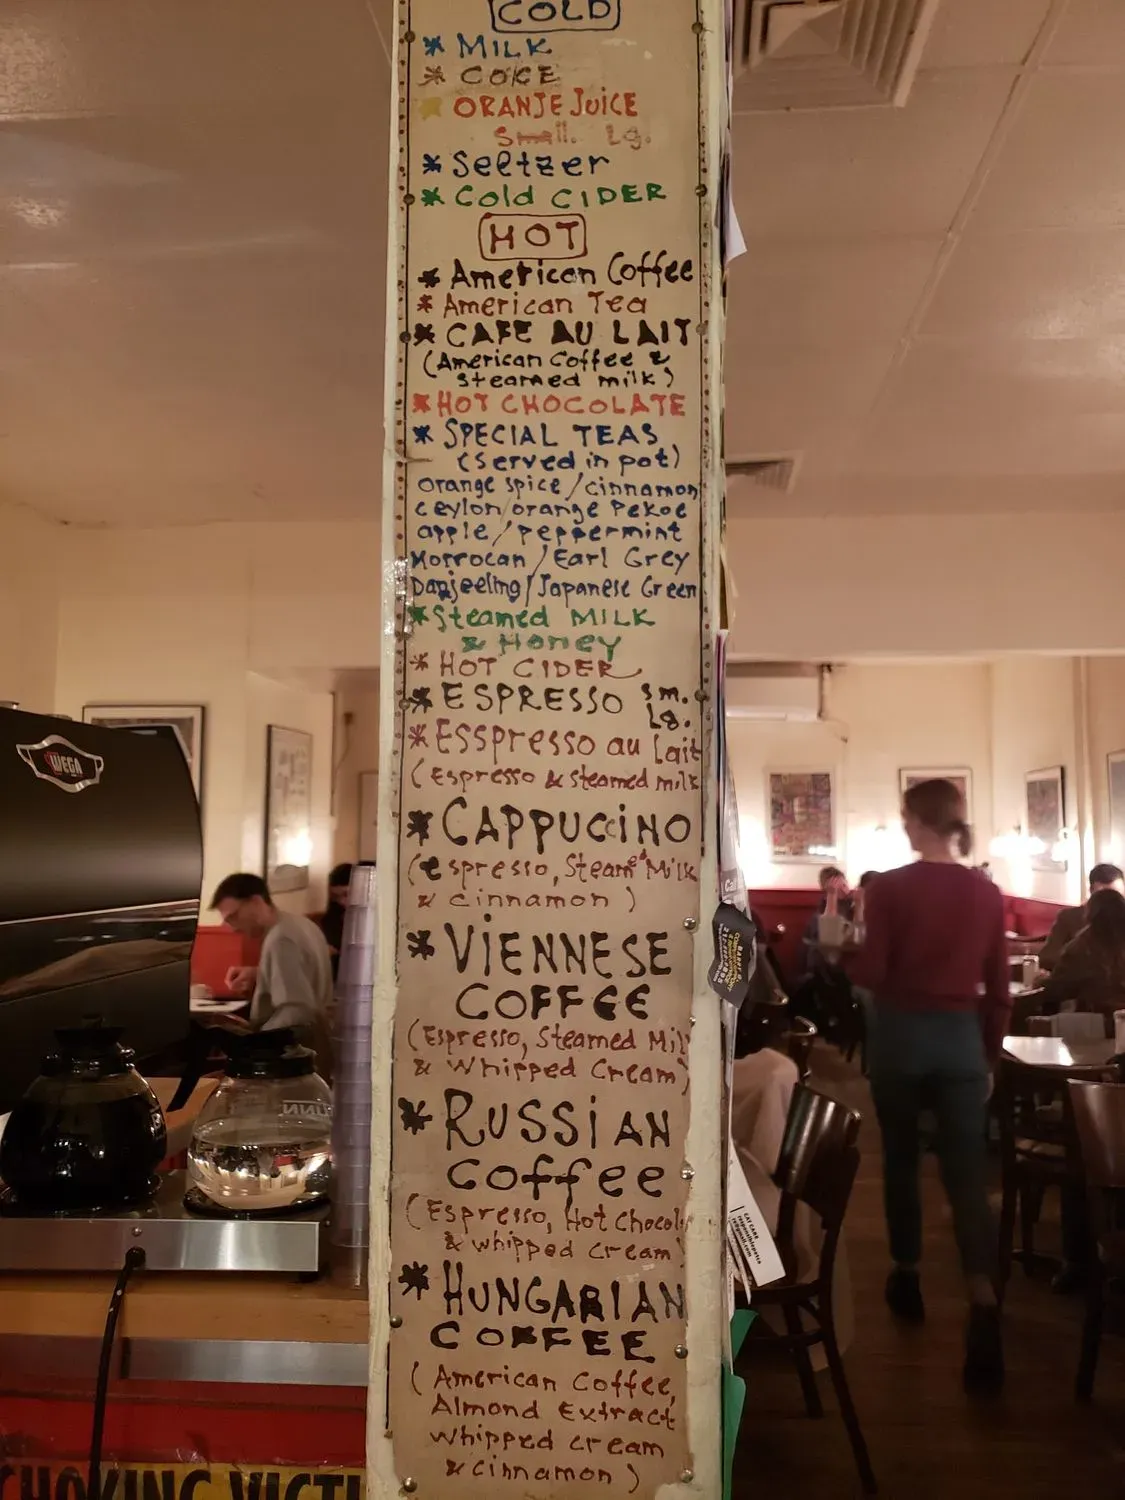 COLD
* MILK
* COKE
* ORANJE JUICE
Small. Lg.
* Seltzer
* Cold CIDER
HOT
* American Coffee
* American Tea
* CAFE AU LAIT
(American Coffee &
steamed milk)
* HOT CHOCOLATE
* SPECIAL TEAS
(served in pot)
orange spice/cinnamon
ceylon/orange Pekoe
apple/peppermint
Morrocan/Earl Grey
Darjeeling/Japanese Green
* Steamed MILK
& Honey
* HOT CIDER
* ESPRESSO sm.
Lg.
* Esspresso au lait
(Espresso & steamed milk
* CAPPUCCINO
(espresso, Steamed Milk
& cinnamon)
* VIENNESE
COFFEE
(Espresso, Steamed Mil
& Whipped Cream)
* RUSSIAN
Coffee
(Espresso, Hot Chocol
& whipped cream)
* HUNGARIAN
COFFEE
(American Coffee,
Almond Extract
whipped cream
& cinnamon)
WEGA
CAT CARE
CHOKING VICTI